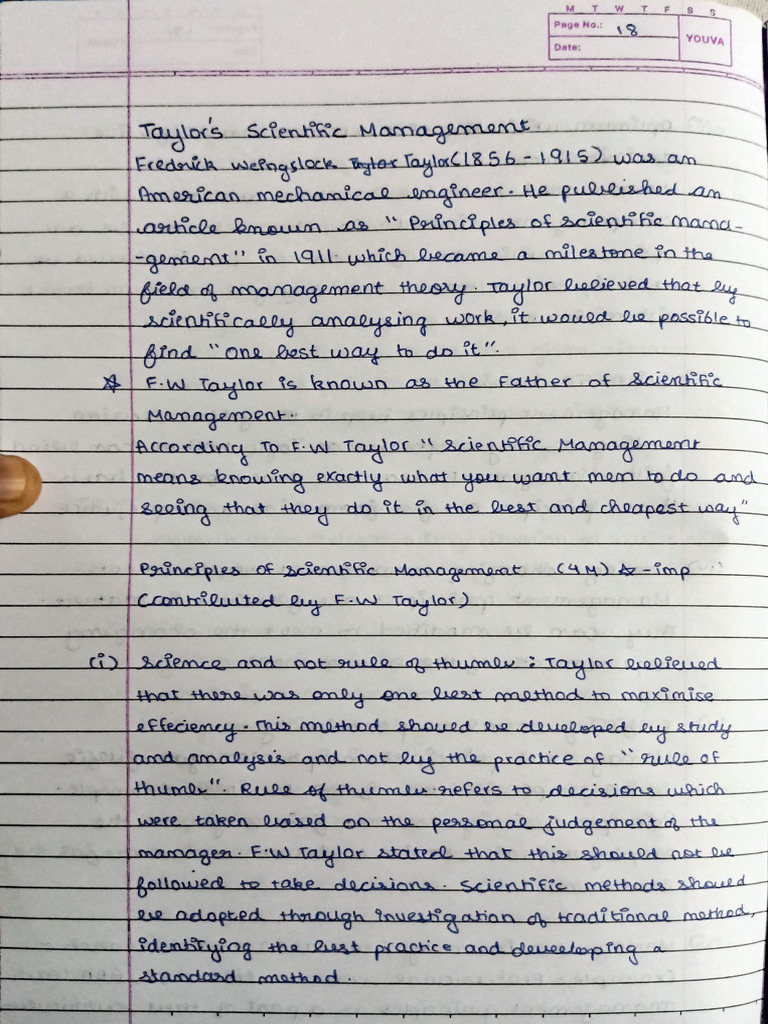 M T W T F S S
Page No.: 18
YOUVA
Date:
Taylor's Scientific Management
Fredrick Weingslock Taylor (1856-1915) was an
American mechanical engineer. He published an
article known as "Principles of scientific mana-
-gement" in 1911 which became a milestone in the
field of management theory. Taylor believed that by
scientifically analysing work, it would be possible to
find "one best way to do it".
☆ F.W Taylor is known as the Father of Scientific
Management.
According To F.W. Taylor "Scientific Management
means knowing exactly what you want men to do and
seeing that they do it in the best and cheapest way"
Principles of Scientific Management (4M) ☆-imp
(contributed by F.W Taylor)
(i) Science and not rule of thumb : Taylor believed
that there was only one best method to maximise
effeciency. This method should be developed by study
and analysis and not by the practice of "rule of
thumb". Rule of thumb refers to decisions which
were taken based on the personal judgement of the
manager. F.W Taylor stated that this should not be
followed to take decisions. Scientific methods should
be adopted through investigation of traditional method,
identifying the best practice and developing a
standard method.